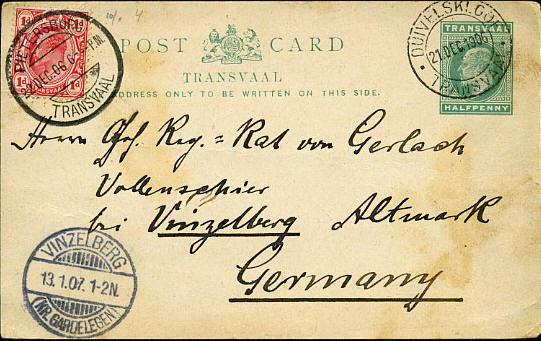 10/- 4
1d 1d
1d TRANSVAAL 1d
PIETERSBURG
DEC.06
P.M.
TRANSVAAL
POST CARD
TRANSVAAL
ADDRESS ONLY TO BE WRITTEN ON THIS SIDE.
TRANSVAAL
HALFPENNY
DUIVELSKLOOF
21.DEC.1906
TRANSVAAL
Herrn Reg.=Rat von Gerlach
Vollenschier
bei Vinzelberg Altmark
Germany
VINZELBERG
13.1.07.1-2N.
(KR. GARDELEGEN)